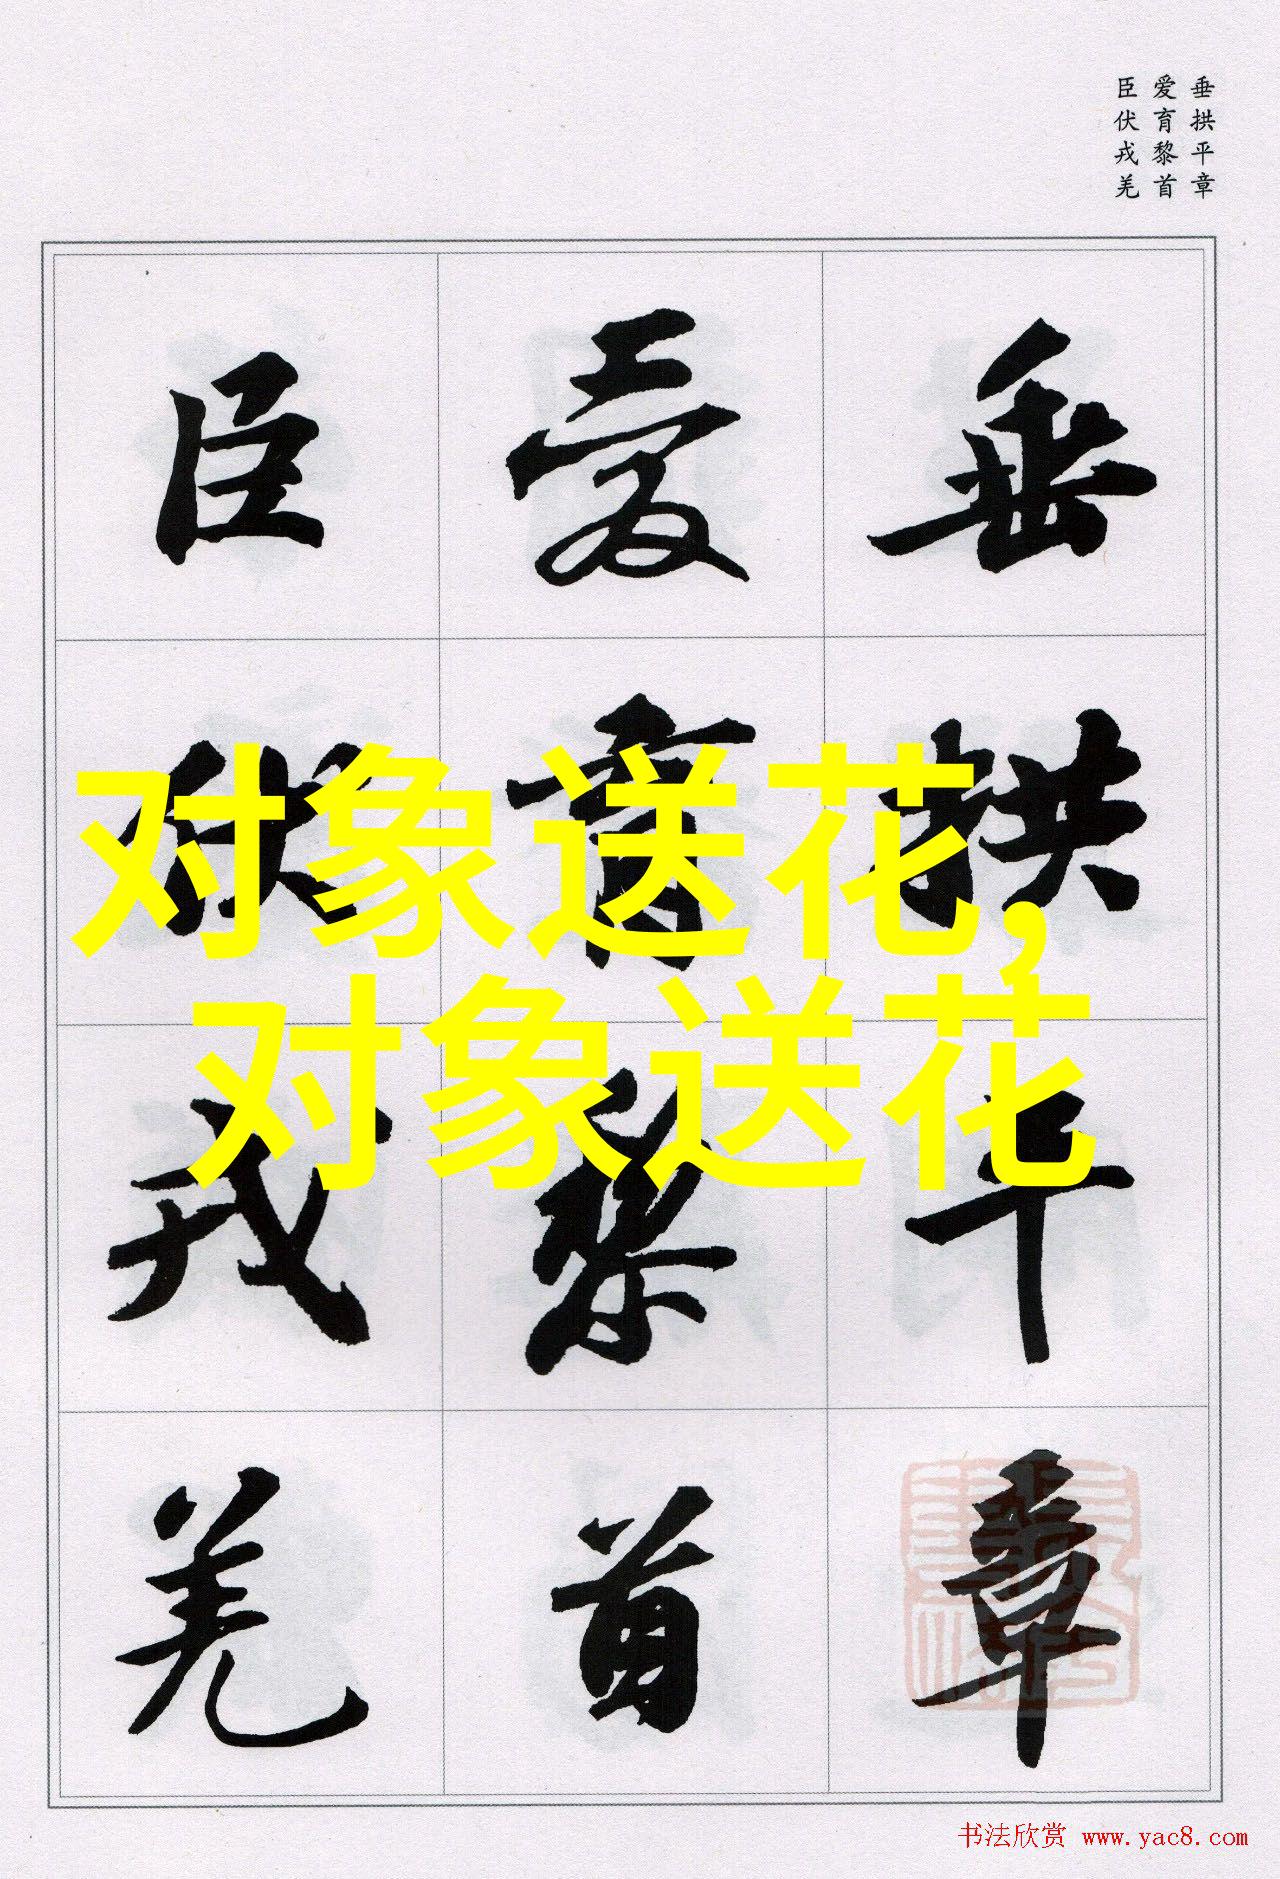 垂拱平章
爱育黎首
臣伏戎羌
垂拱平章
爱育黎首
臣伏戎羌
对象送花,
对象送花
书法欣赏 www.yac8.com